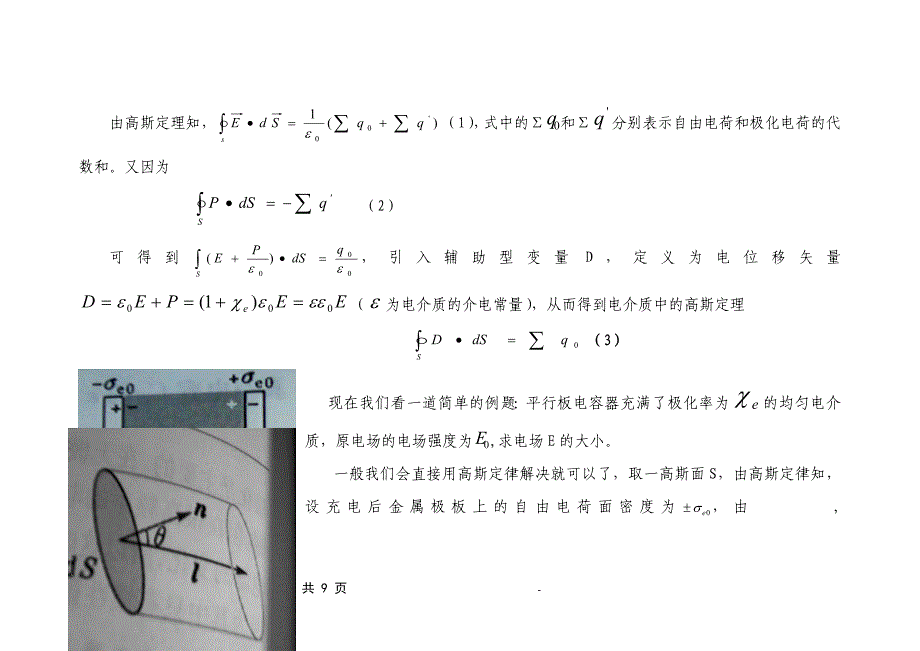 由高斯定理知，∮s E • d S = 1/ε0 (∑ q0 + ∑ q')（1），式中的 Σq0和 Σq' 分别表示自由电荷和极化电荷的代
数和。又因为
∮S P • dS = −∑ q' （2）
可得到 ∫S (E + P/ε0) • dS = q0/ε0，引入辅助型变量 D，定义为电位移矢量
D = ε0E + P = (1 + χe)ε0E = εε0E（ε 为电介质的介电常量），从而得到电介质中的高斯定理
∮S D • dS = ∑ q0（3）
−σe0 +σe0
+ − + −
现在我们看一道简单的例题：平行板电容器充满了极化率为 χe 的均匀电介
质，原电场的电场强度为E0,求电场 E 的大小。
一般我们会直接用高斯定律解决就可以了，取一高斯面 S，由高斯定律知，
设充电后金属极板上的自由电荷面密度为 ±σe0，由 ，
n
θ
l
dS
共 9 页 -